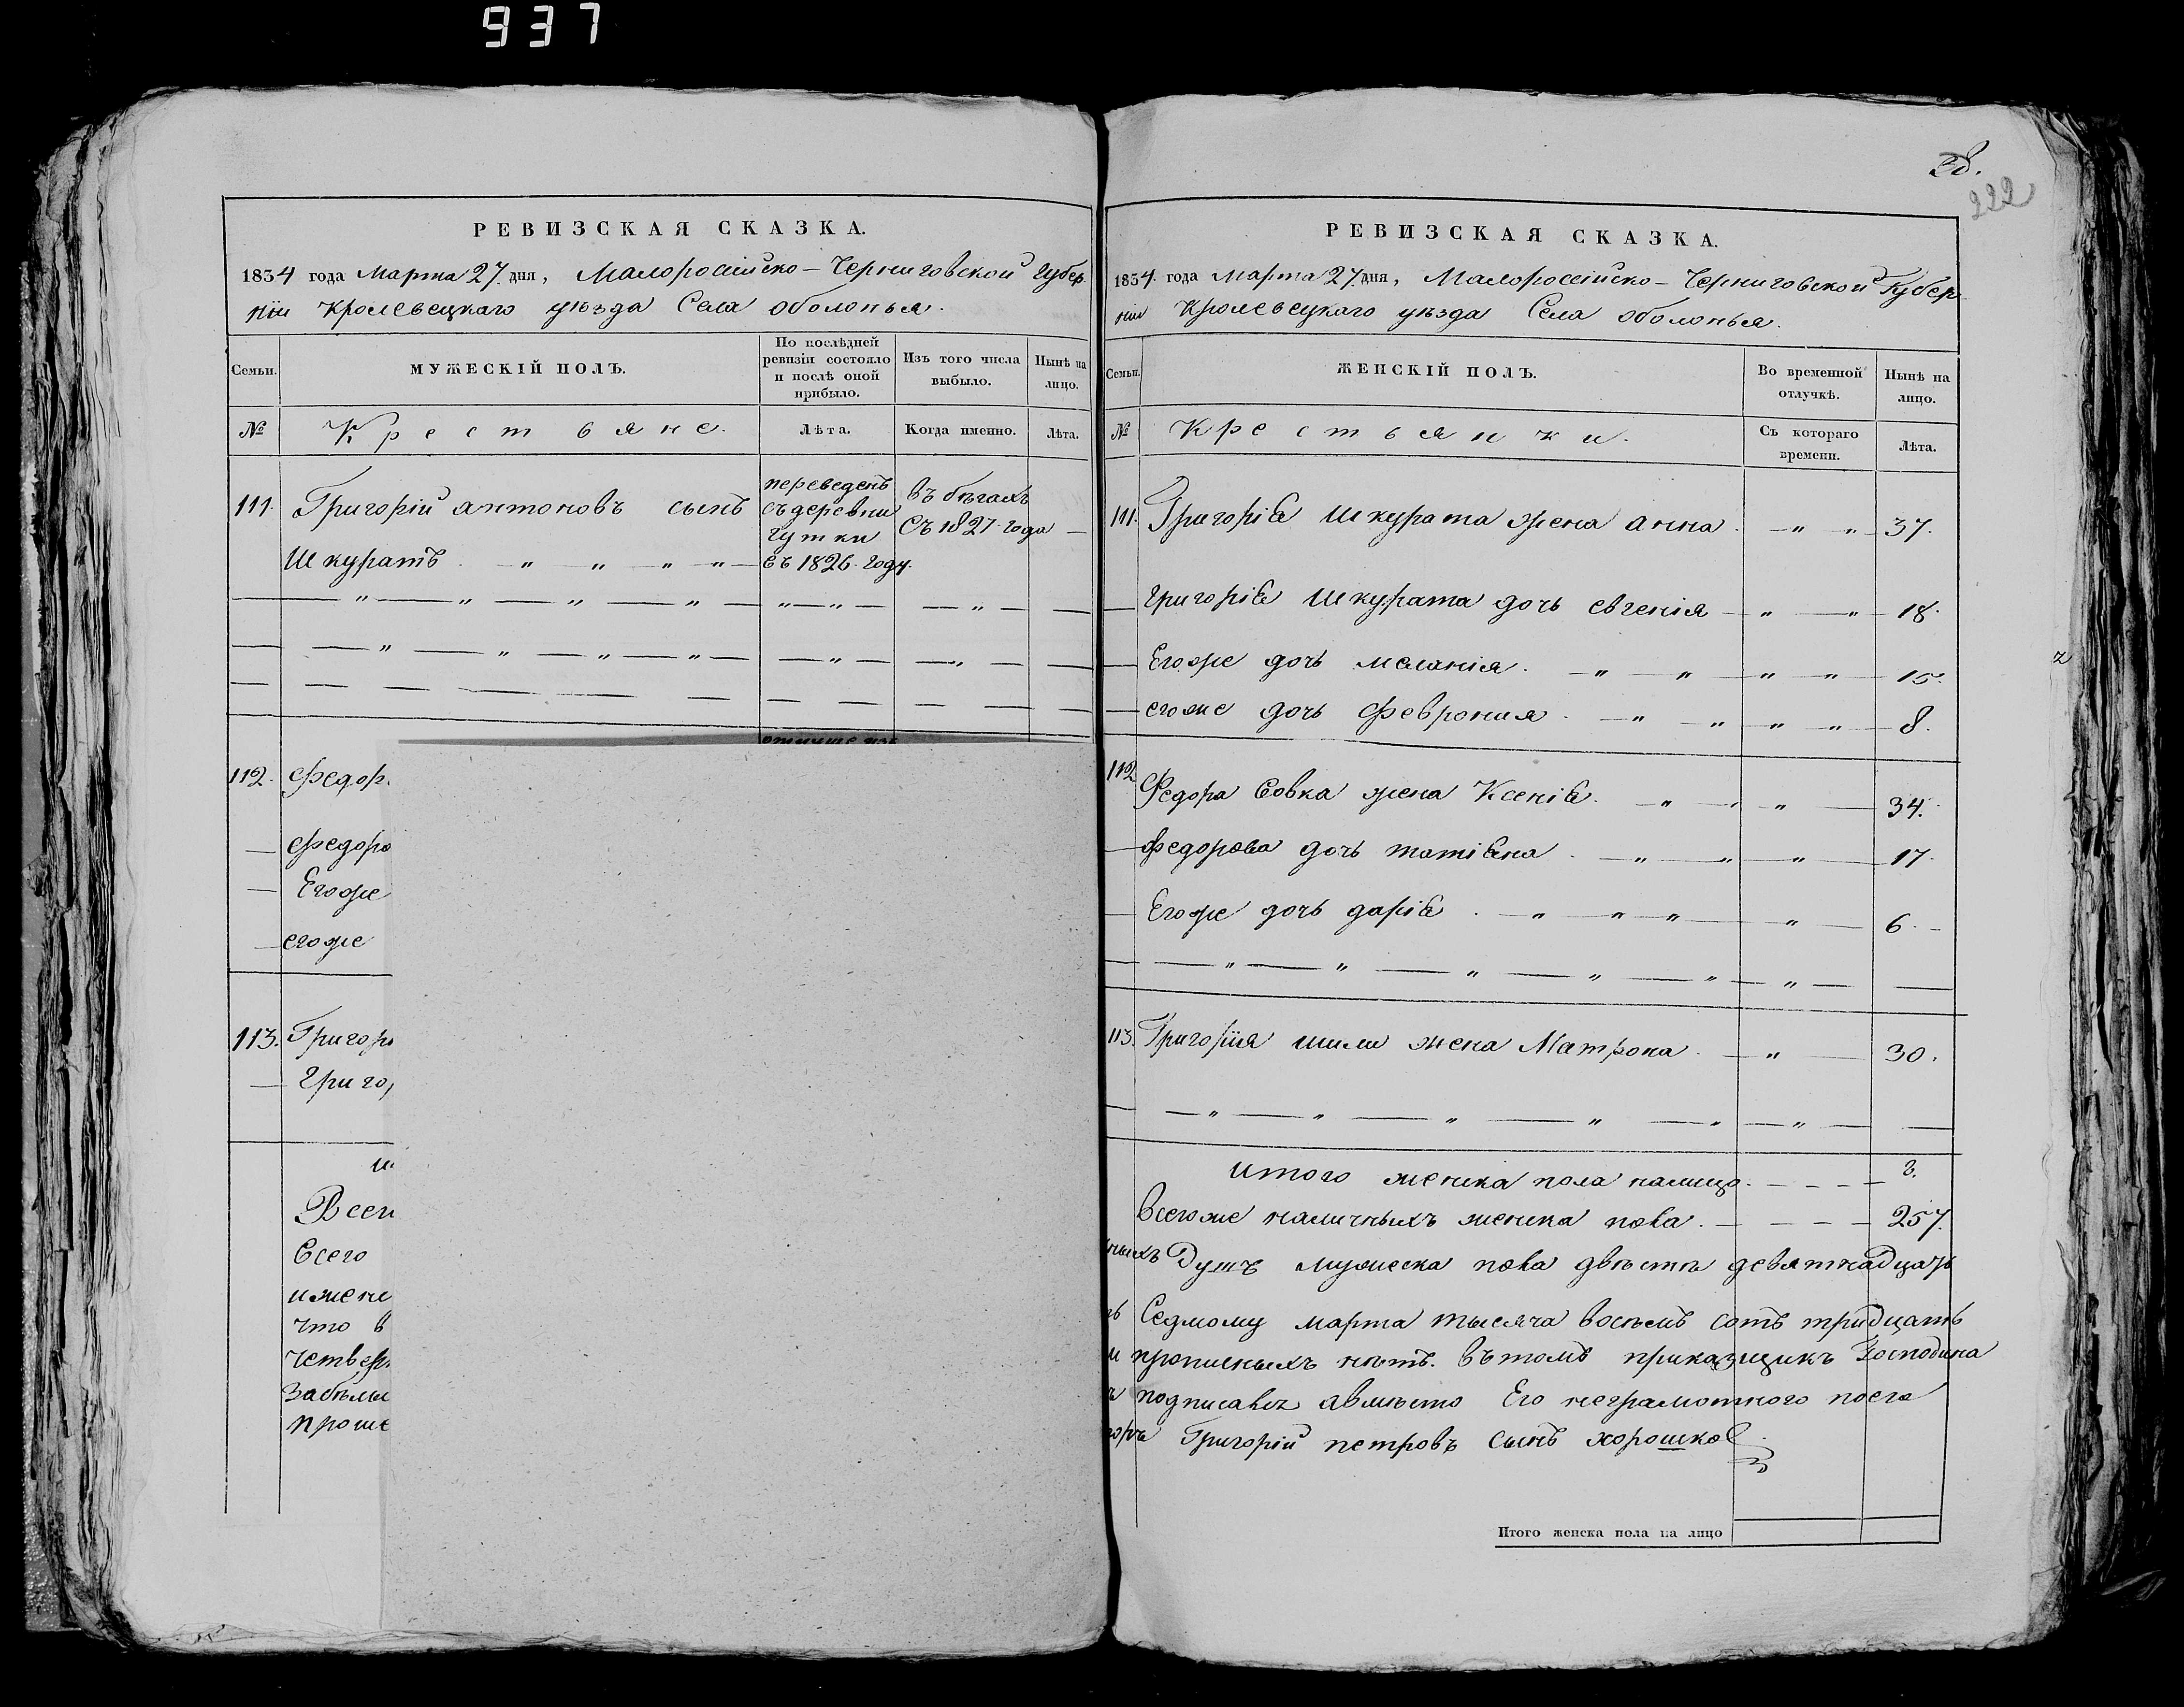 937
РЕВИЗСКАЯ СКАЗКА.
1834 года Марта 27. дня, Малоросiйско - Черниговской губер
нiи Кролевецкаго уѣзда Села оболонья.
Семьи. МУЖЕСКІЙ ПОЛЪ. По послѣдней ревизіи состояло и послѣ оной прибыло. Изъ того числа выбыло. Нынѣ на лицо.
№ Крестьяне. Лѣта. Когда именно. Лѣта.
111. Григорій антоновъ сынъ
Шкуратъ
переведенъ
съ деревни
Гутки
въ 1826. году.
въ бѣгахъ
съ 1827 года
112. федор
федоро
Егоже
егоже
113. Григор
Григо
Всег
Всего
имене
что в
четвер
проше
28.
222
РЕВИЗСКАЯ СКАЗКА.
1834. года Марта 27 дня, Малороссiйско - Черниговской Губер
нiи Кролевецкаго уѣзда Села оболонья.
Семьи. ЖЕНСКІЙ ПОЛЪ. Во временной отлучкѣ. Нынѣ на лицо.
№ Крестьянки. Съ котораго времени. Лѣта.
111. Григорія Шкурата жена анна. 37.
григорія Шкурата дочь евгенія 18.
Егоже дочь меланія. 15.
егоже дочь феврония. 8.
112 Федора Совка жена Ксенія. 34.
федорова дочь татіяна. 17.
Егоже дочь дарія. 6.
113. Григорія шили жена Матрона. 30.
итого женска пола налицо. 8.
всегоже наличныхъ женска пола. 257.
ныхъ Душъ мужеска пола двѣстѣ девятнадцать
Седмому марта тысяча восемъ сотъ тридцать
и прописныхъ нѣтъ. въ томъ прикащикъ Господина
подписался авмѣсто Его неграмотного поего
Григорій петровъ сынъ хорошко
Итого женска пола на лицо